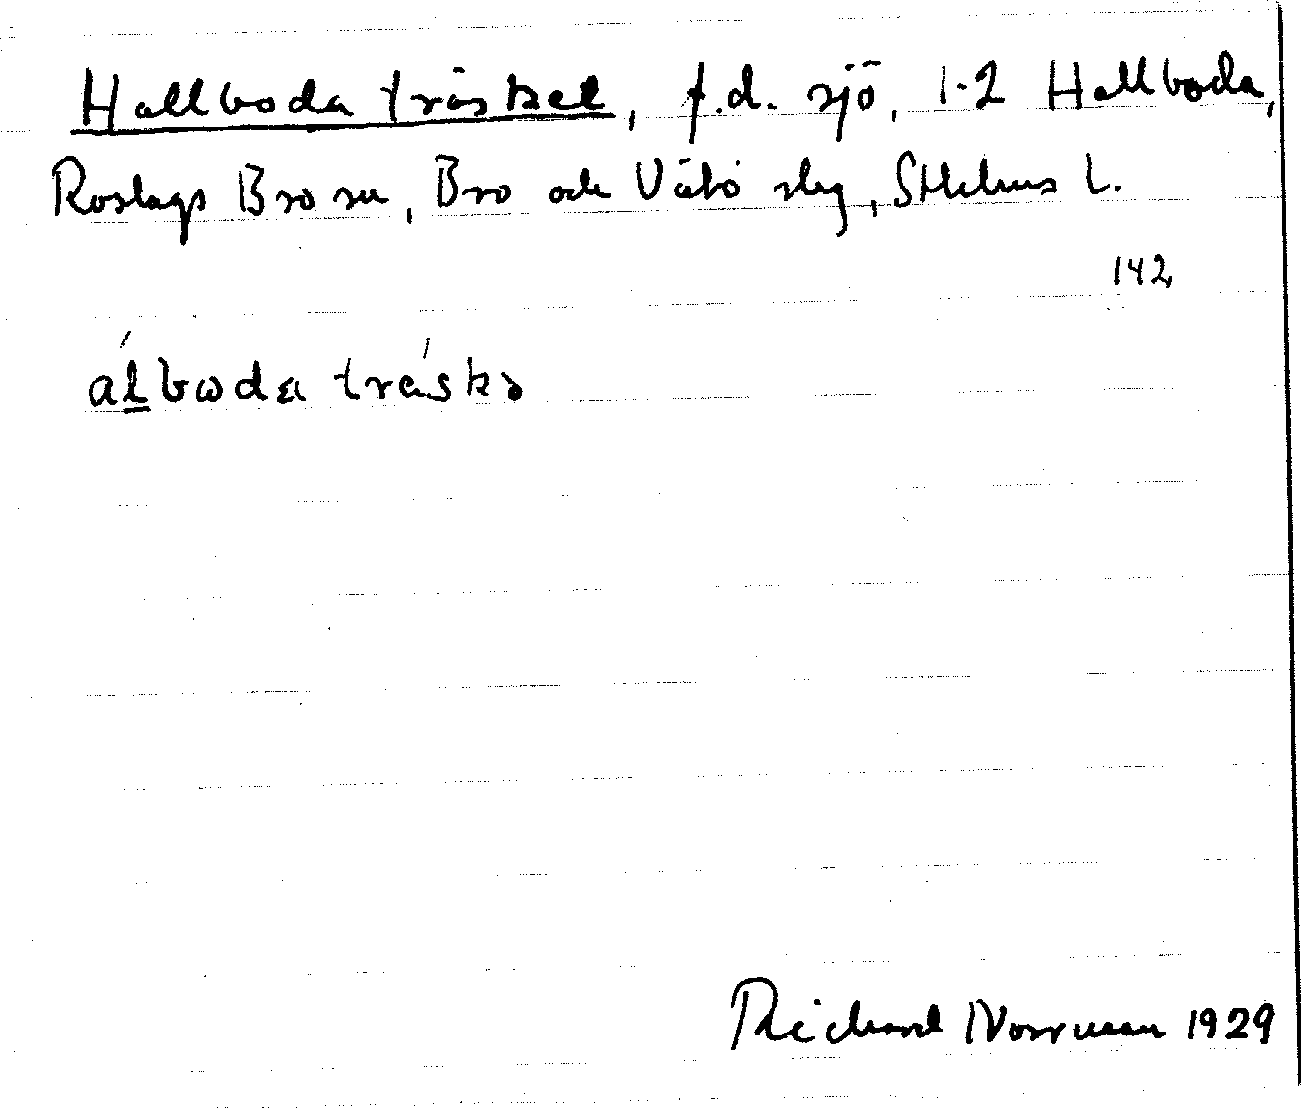 Hallboda träsket, f.d. sjö, 1-2 Hallboda,
Roslags Bro sn, Bro och Vätö slg, Sthlms L.
142
álboda träskə
Richard Norrman 1929